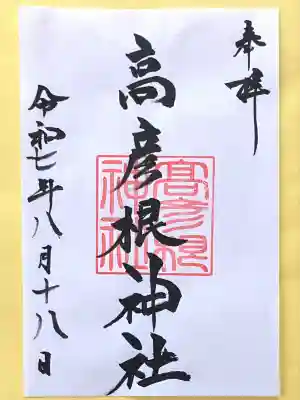 奉拝
高彦根神社
髙彦根
神社
令和七年八月十八日